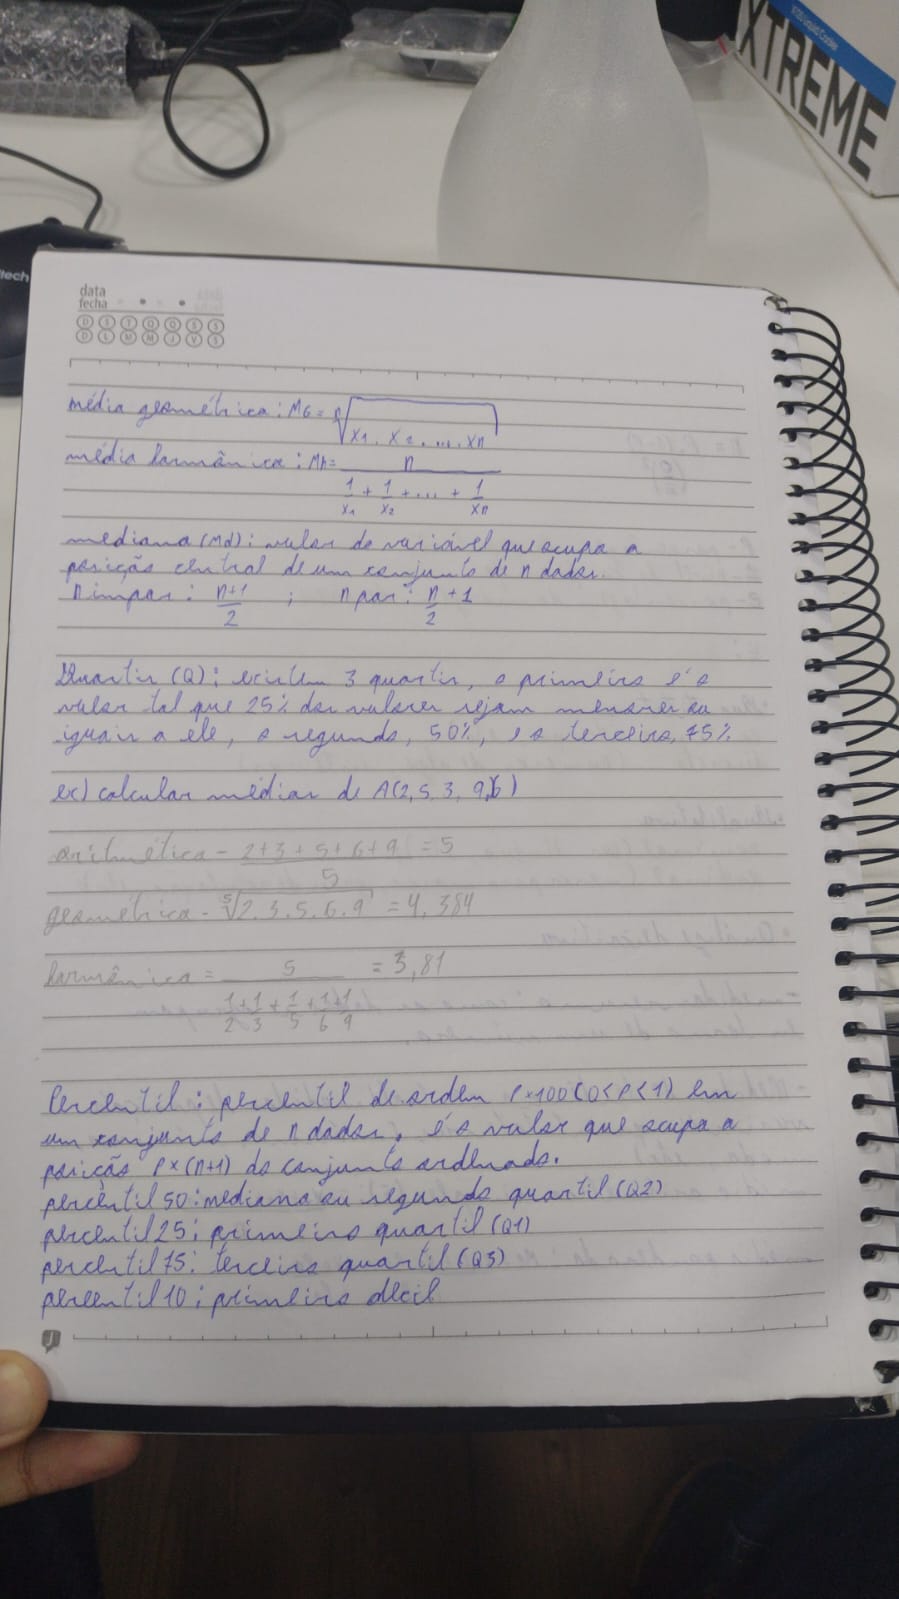 XTREME
tech
data
fecha
D S T Q Q S S
D L M M J V S
média geométrica: MG = n√x1 . x2 . ... . xn
média harmônica: Mh = n
1/x1 + 1/x2 + ... + 1/xn
mediana (Md): valor da variável que ocupa a
posição central de um conjunto de n dados.
n impar: n+1/2 ; n par: n/2 + 1
Quartis (Q): existem 3 quartis, o primeiro é o
valor tal que 25% dos valores sejam menores ou
iguais a ele, o segundo, 50%, e o terceiro, 75%
ex) calcular médias de A(2, 5, 3, 9, 6)
aritmética - 2+3+5+6+9 = 5
5
geométrica - 5√2.3.5.6.9 = 4,384
harmônica = 5 = 3,81
1/2 + 1/3 + 1/5 + 1/6 + 1/9
Percentil: percentil de ordem P×100 (0<P<1) em
um conjunto de n dados, é o valor que ocupa a
posição P×(n+1) do conjunto ordenado.
percentil 50: mediana ou segundo quartil (Q2)
percentil 25: primeiro quartil (Q1)
percentil 75: terceiro quartil (Q3)
percentil 10: primeiro decil